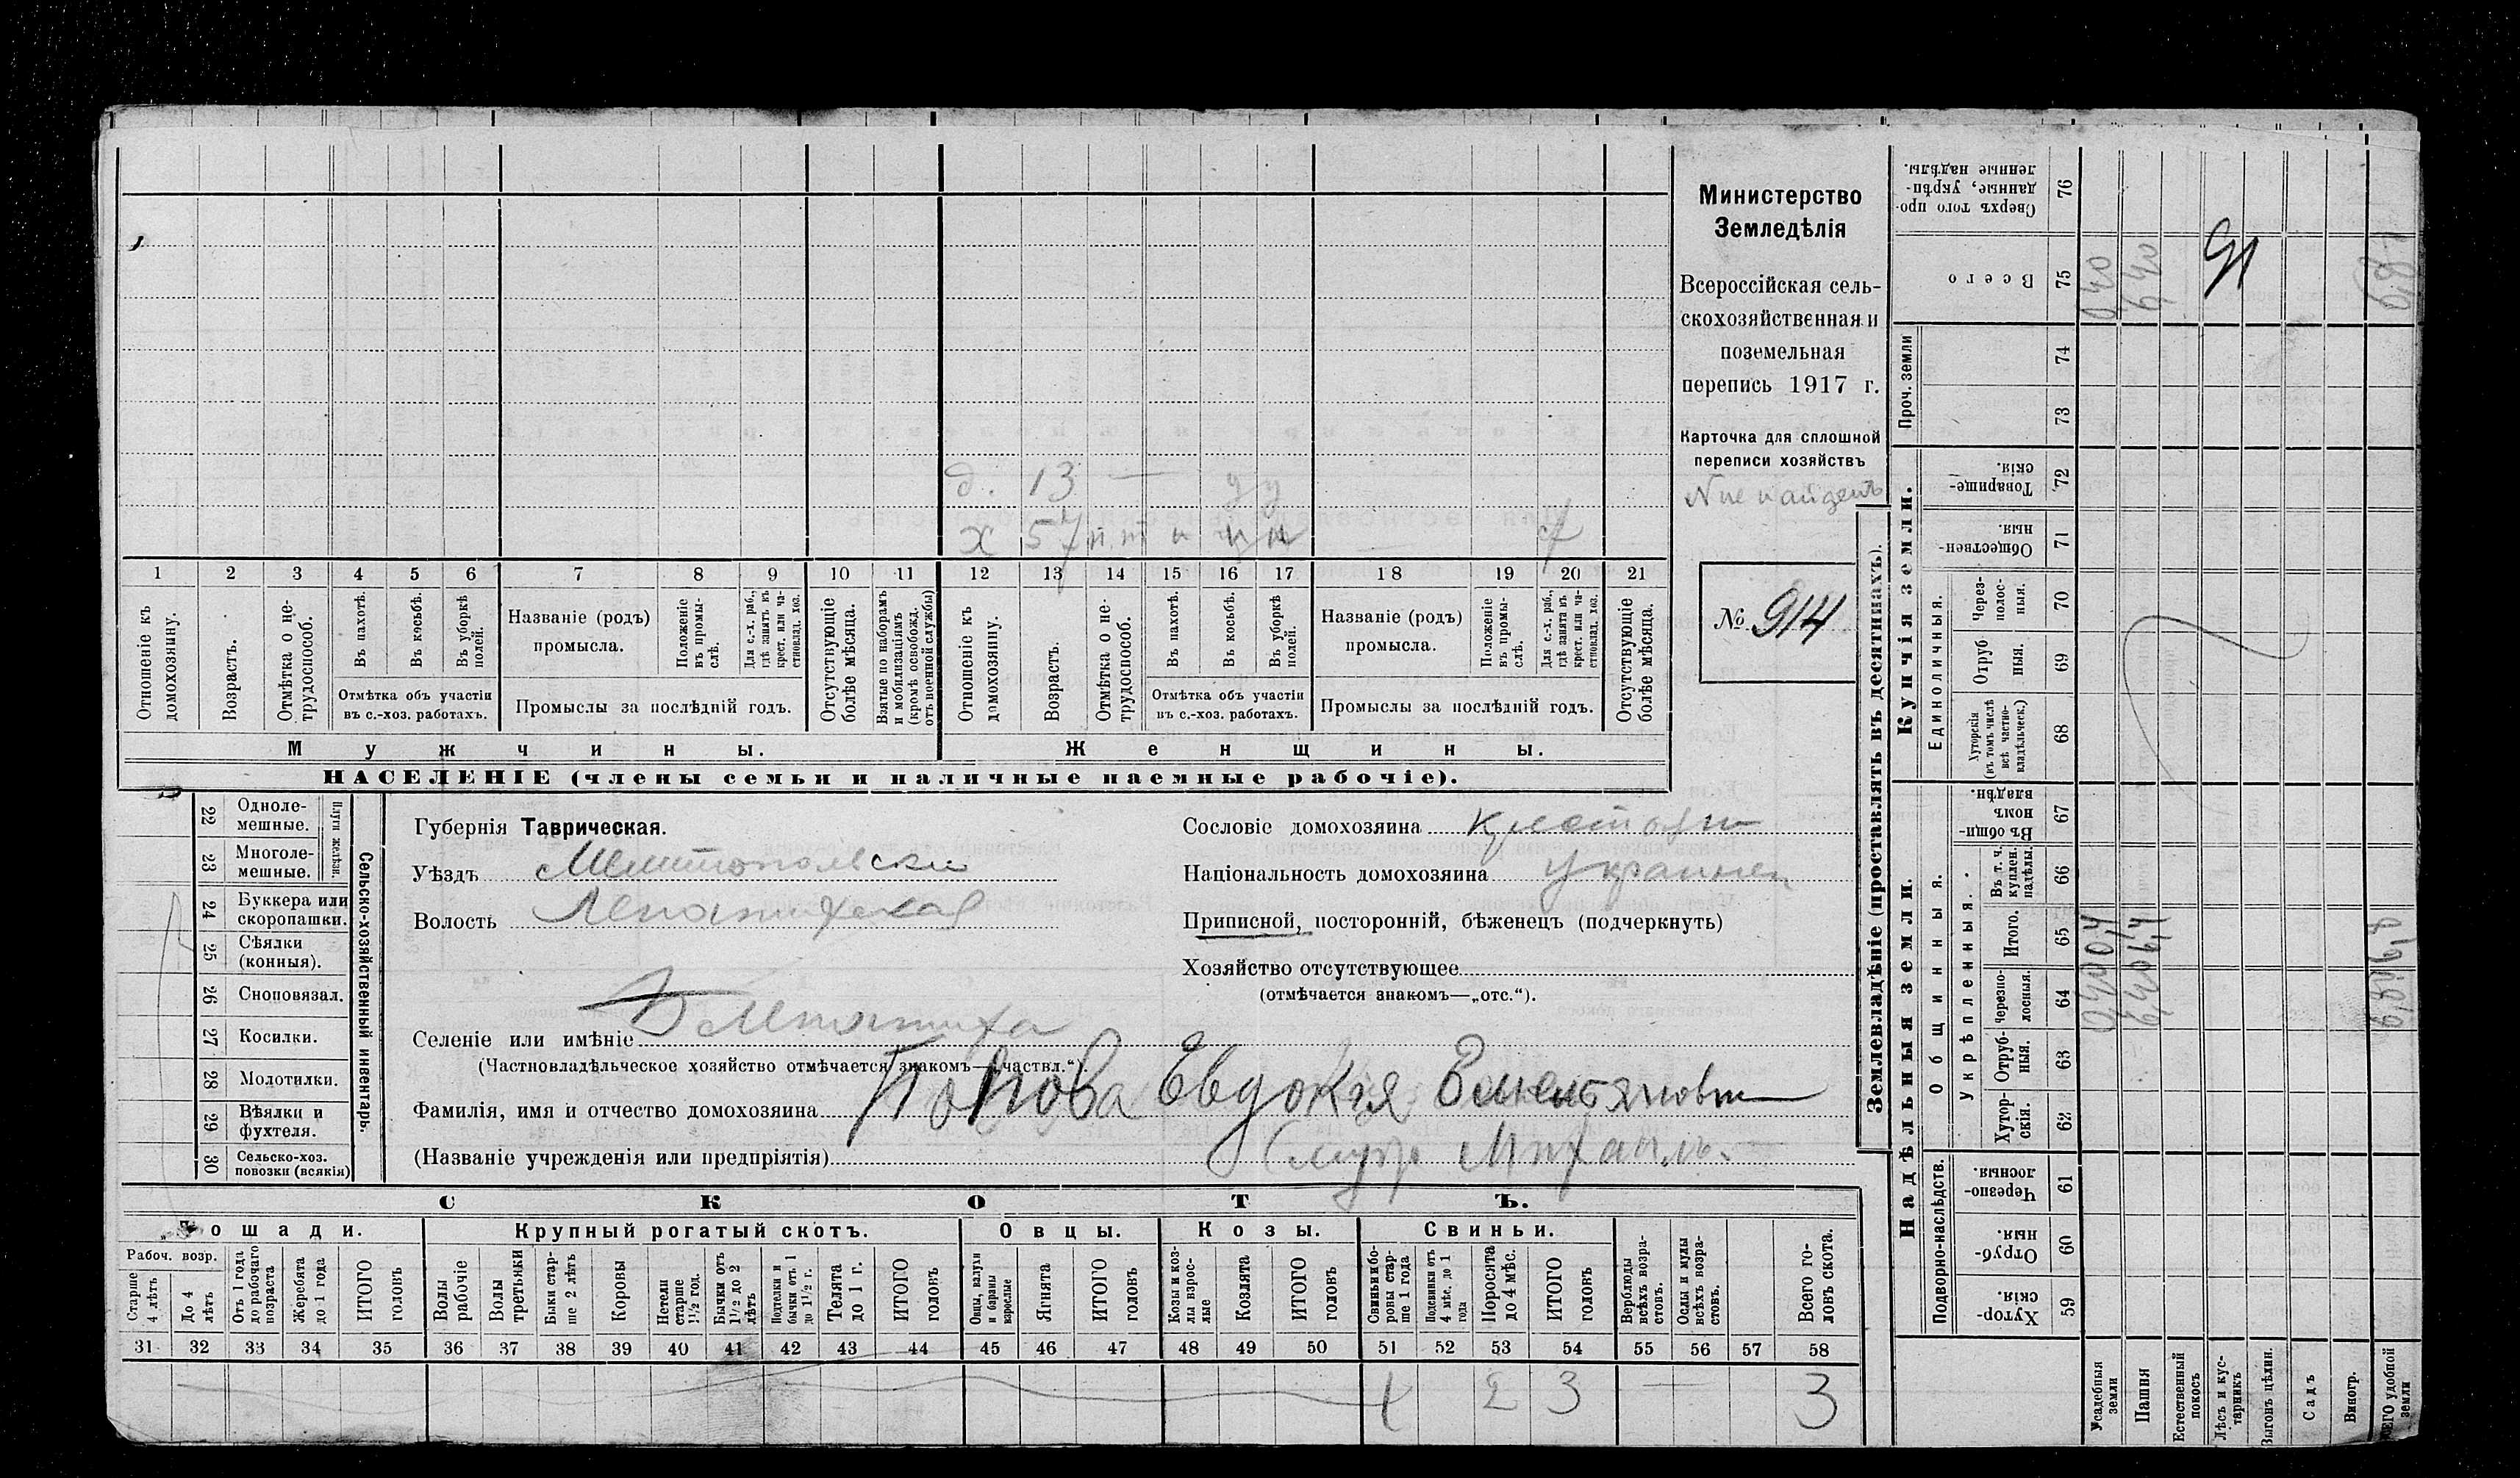 Министерство
Земледѣлія
Всероссійская сель-
скохозяйственная и
поземельная
перепись 1917 г.
Карточка для сплошной
переписи хозяйствъ
№ не найденъ
№ 914
д. 13 —
х 57 н н н
1 2 3 4 5 6 7 8 9 10 11 12 13 14 15 16 17 18 19 20 21
Отношеніе къ домохозяину.
Возрастъ.
Отмѣтка о не-трудоспособ.
Въ пахотѣ.
Въ косьбѣ.
Въ уборкѣ полей.
Отмѣтка объ участіи
въ с.-хоз. работахъ.
Названіе (родъ)
промысла.
Положеніе въ промы-слѣ.
Для с.-х. раб., гдѣ занятъ въ крест. или ча-стновлад. хоз.
Промыслы за послѣдній годъ.
Отсутствующіе болѣе мѣсяца.
Взятые по наборамъ и мобилизаціямъ (кромѣ освобожд. отъ военной службы)
Отношеніе къ домохозяину.
Возрастъ.
Отмѣтка о не-трудоспособ.
Въ пахотѣ.
Въ косьбѣ.
Въ уборкѣ полей.
Отмѣтка объ участіи
въ с.-хоз. работахъ.
Названіе (родъ)
промысла.
Положеніе въ промы-слѣ.
Для с.-х. раб., гдѣ занята въ крест. или ча-стновлад. хоз.
Промыслы за послѣдній годъ.
Отсутствующіе болѣе мѣсяца.
Мужчины. Женщины.
НАСЕЛЕНІЕ (члены семьи и наличные наемные рабочіе).
Сельско-хозяйственный инвентарь.
Плуги желѣзн.
22 Одноле-мешные.
23 Многоле-мешные.
24 Буккера или скоропашки.
25 Сѣялки (конныя).
26 Сноповязал.
27 Косилки.
28 Молотилки.
29 Вѣялки и фухтеля.
30 Сельско-хоз. повозки (всякія)
Губернія Таврическая.
Уѣздъ Мелитопольски
Волость Лепатихская
Селеніе или имѣніе Б Лепатиха
(Частновладѣльческое хозяйство отмѣчается знакомъ—„частвл.“).
Фамилія, имя и отчество домохозяина Попова Евдокія Емельяновн
(Названіе учрежденія или предпріятія)
Сословіе домохозяина
Національность домохозяина украинец
Приписной, посторонній, бѣженецъ (подчеркнуть)
Хозяйство отсутствующее
(отмѣчается знакомъ—„отс.“).
СКОТЪ.
Лошади. Крупный рогатый скотъ. Овцы. Козы. Свиньи.
Рабоч. возр.
Старше 4 лѣтъ
До 4 лѣтъ
Отъ 1 года до рабочаго возраста
Жеребята до 1 года
ИТОГО головъ
Волы рабочіе
Волы третьяки
Быки стар-ше 2 лѣтъ
Коровы
Нетели старше 1 1/2 год.
Бычки отъ 1 1/2 до 2 лѣтъ
Подтелки и бычки отъ 1 до 1 1/2 г.
Телята до 1 г.
ИТОГО головъ
Овцы, валухи и бараны взрослые
Ягнята
ИТОГО головъ
Козы и коз-лы взрос-лые
Козлята
ИТОГО головъ
Свиньи и бо-ровы стар-ше 1 года
Подсвинки отъ 4 мѣс. до 1 года
Поросята до 4 мѣс.
ИТОГО головъ
Верблюды всѣхъ возра-стовъ.
Ослы и мулы всѣхъ возра-стовъ.
Всего го-ловъ скота.
31 32 33 34 35 36 37 38 39 40 41 42 43 44 45 46 47 48 49 50 51 52 53 54 55 56 57 58
1 2 3 3
Землевладѣніе (проставлять въ десятинахъ).
Надѣльныя земли.
Купчія земли.
Проч. земли
Подворно-наслѣдств.
Общинныя.
Укрѣпленныя.
Единоличныя.
59 Хутор-скія.
60 Отруб-ныя.
61 Черезпо-лосныя.
62 Хутор-скія.
63 Отруб-ныя.
64 Черезпо-лосныя.
65 Итого.
66 Въ т. ч. куплен. надѣлы.
67 Въ общин-номъ владѣн.
68 Хуторскія (въ томъ числѣ всѣ частно-владѣльческ.)
69 Отруб ныя.
70 Через-полос-ныя.
71 Обществен-ныя.
72 Товарище-скія.
73
74
75 Всего
76 Сверхъ того про-данные, укрѣп-ленные надѣлы.
Усадебныя земли
Пашня
Естественный покосъ
Лѣсъ и кус-тарникъ
Выгонъ цѣлин.
Садъ
Виногр.
ВСЕГО удобной земли